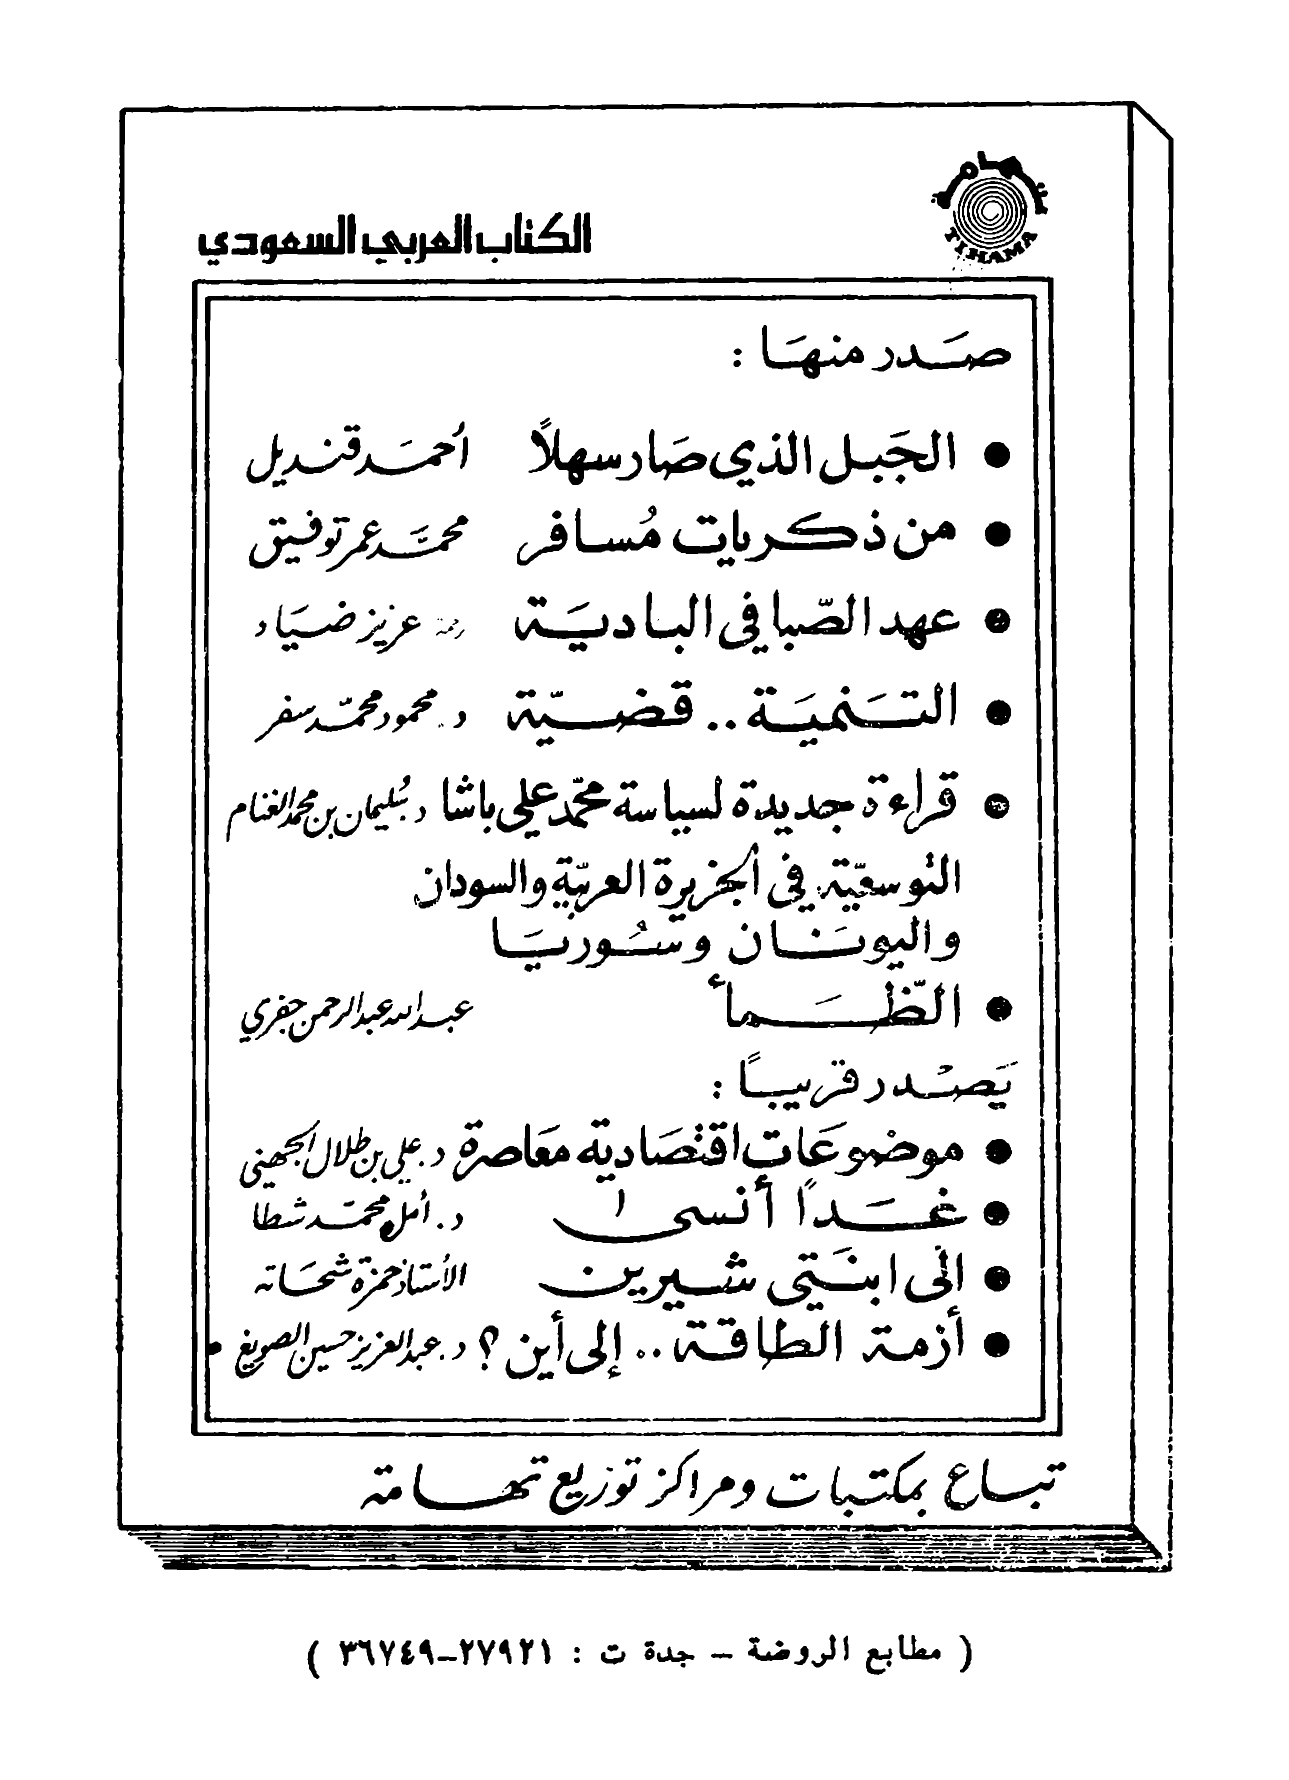 تهامة
TIHAMA
الكتاب العربي السعودي
صَدر منهَا :
● الجَبل الذي صَار سهلاً أحمَد قنديل
● من ذكريات مُسافر محمَّد عمر توفيق
● عهد الصّبا في الباديَة ترجمة عزيز ضيَاء
● التَنميَة .. قضيّة د. محمود محمّد سفر
● قراءة جديدة لسياسة محمّد علي باشا د. سُليمان بن محمد الغنام
التوسعيّة في الجزيرة العربيّة والسودان
واليونَان وسُوريَا
● الظّمَأ عبد الله عبد الرحمن جفري
يَصْدر قريبًا :
● موضوعَات اقتصَادية معَاصرة د. علي بن طلال الجهني
● غَدًا أنسى د. أمل محمّد شطا
● الى ابنَتي شيرين الأستاذ حمزة شحَاته
● أزمة الطاقة .. إلى أين ؟ د. عبد العزيز حسين الصويغ
تباع بمكتبات ومراكز توزيع تهامة
( مطابع الروضة – جدة ت : ٢٧٩٢١–٣٦٧٤٩ )